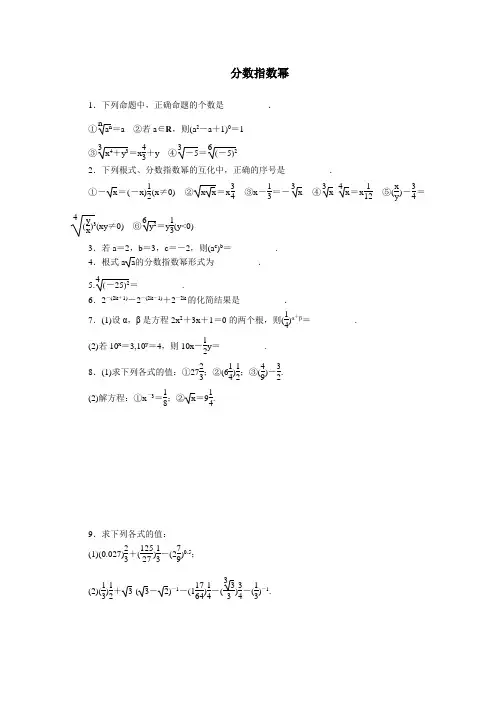 分数指数幂
1．下列命题中，正确命题的个数是__________．
①\sqrt[n]{a^n}＝a　②若 a∈R，则(a²－a＋1)⁰＝1
③\sqrt[3]{x⁴＋y³}＝x^{4/3}＋y　④\sqrt[3]{－5}＝\sqrt[6]{(－5)²}
2．下列根式、分数指数幂的互化中，正确的序号是__________．
①－\sqrt{x}＝(－x)^{1/2}(x≠0)　②\sqrt{x\sqrt{x}}＝x^{3/4}　③x－^{1/3}＝－\sqrt[3]{x}　④\sqrt[3]{x}·\sqrt[4]{x}＝x^{1/12}　⑤(x/y)－^{3/4}＝
\sqrt[4]{(y/x)³}(xy≠0)　⑥\sqrt[6]{y²}＝y^{1/3}(y<0)
3．若 a＝2，b＝3，c＝－2，则(a^c)^b＝__________.
4．根式 a\sqrt{a}的分数指数幂形式为__________．
5.\sqrt[4]{(－25)²}＝__________.
6．2^{－(2k＋1)}－2^{－(2k－1)}＋2^{－2k}的化简结果是__________．
7．(1)设 α，β 是方程 2x²＋3x＋1＝0 的两个根，则(1/4)^{α＋β}＝__________.
(2)若 10^x＝3,10^y＝4，则 10x－1/2y＝__________.
8．(1)求下列各式的值：①27^{2/3}；②(6 1/4)^{1/2}；③(4/9)－^{3/2}.
(2)解方程：①x^{－3}＝1/8；②\sqrt{x}＝9^{1/4}.
9．求下列各式的值：
(1)(0.027)^{2/3}＋(125/27)^{1/3}－(2 7/9)^{0.5}；
(2)(1/3)^{1/2}＋\sqrt{3}·(\sqrt{3}－\sqrt{2})^{－1}－(1 17/64)^{1/4}－(\sqrt[3]{3}/3)^{3/4}－(1/3)^{－1}.